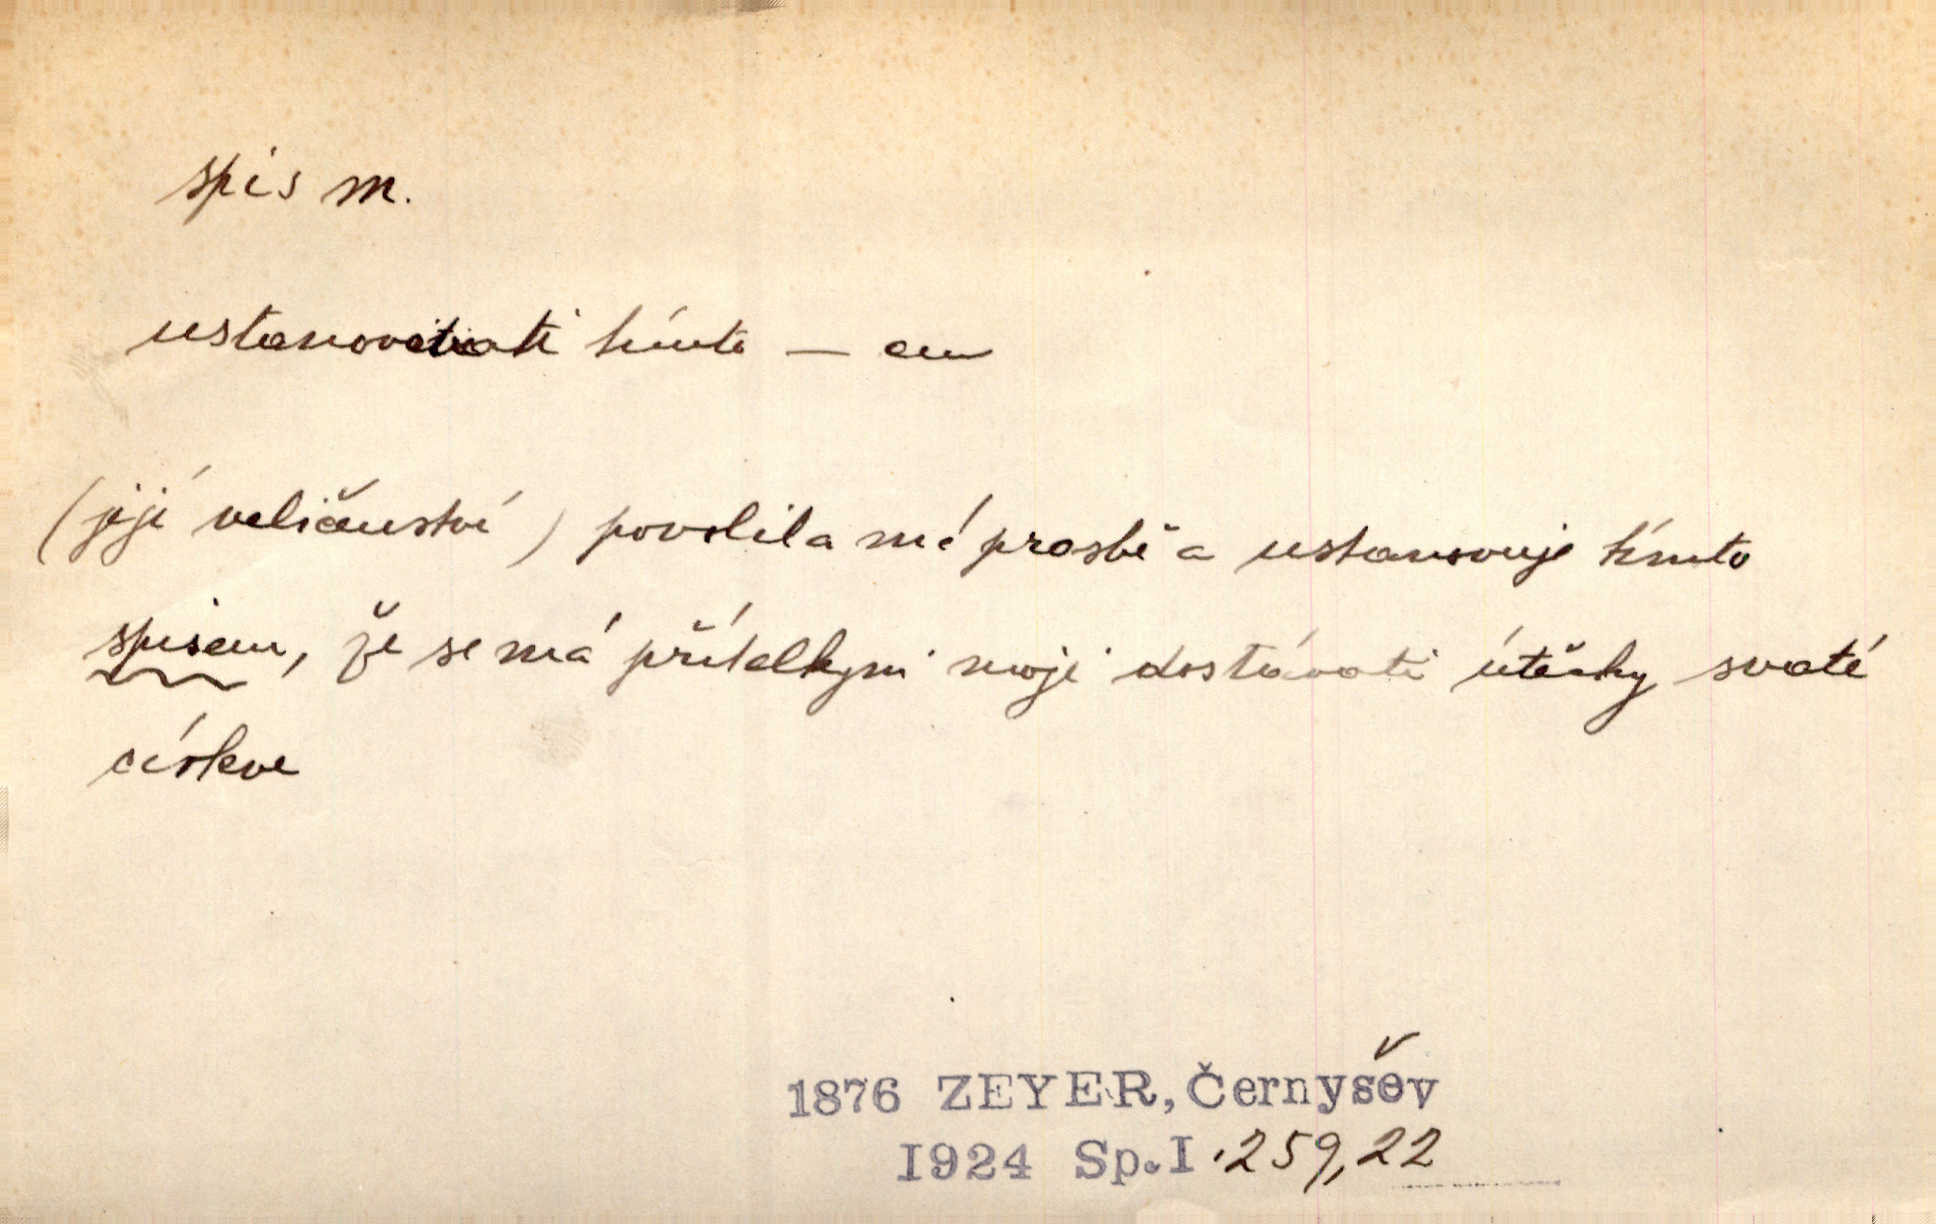 spis m.
ustanoviti tímto — em
(její veličenství) povolila mé prosbě a ustanovuje tímto
spisem, že se má přítelkyni mojí dostávati útěchy svaté
církve
1876 ZEYER, Černyšev
1924 Sp.I.259,22